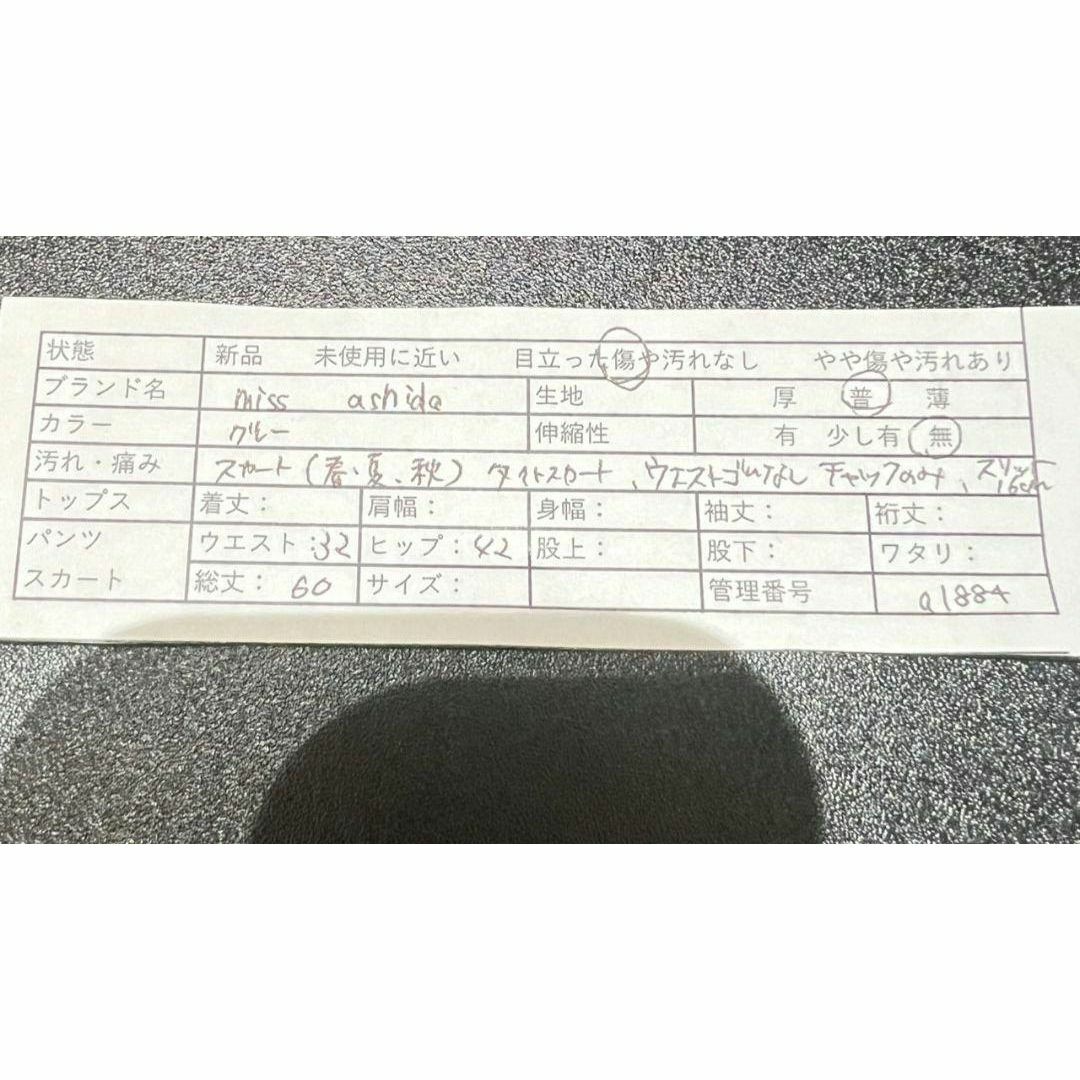 状態 新品 未使用に近い 目立った傷や汚れなし やや傷や汚れあり
ブランド名 miss ashida 生地 厚 普 薄
カラー グレー 伸縮性 有 少し有 無
汚れ・痛み スカート(春、夏、秋) タイトスカート、ウエストゴムなし チャックのみ、スリット16cm
トップス 着丈: 肩幅: 身幅: 袖丈: 裄丈:
パンツ ウエスト:32 ヒップ:42 股上: 股下: ワタリ:
スカート 総丈: 60 サイズ: 管理番号 a1884